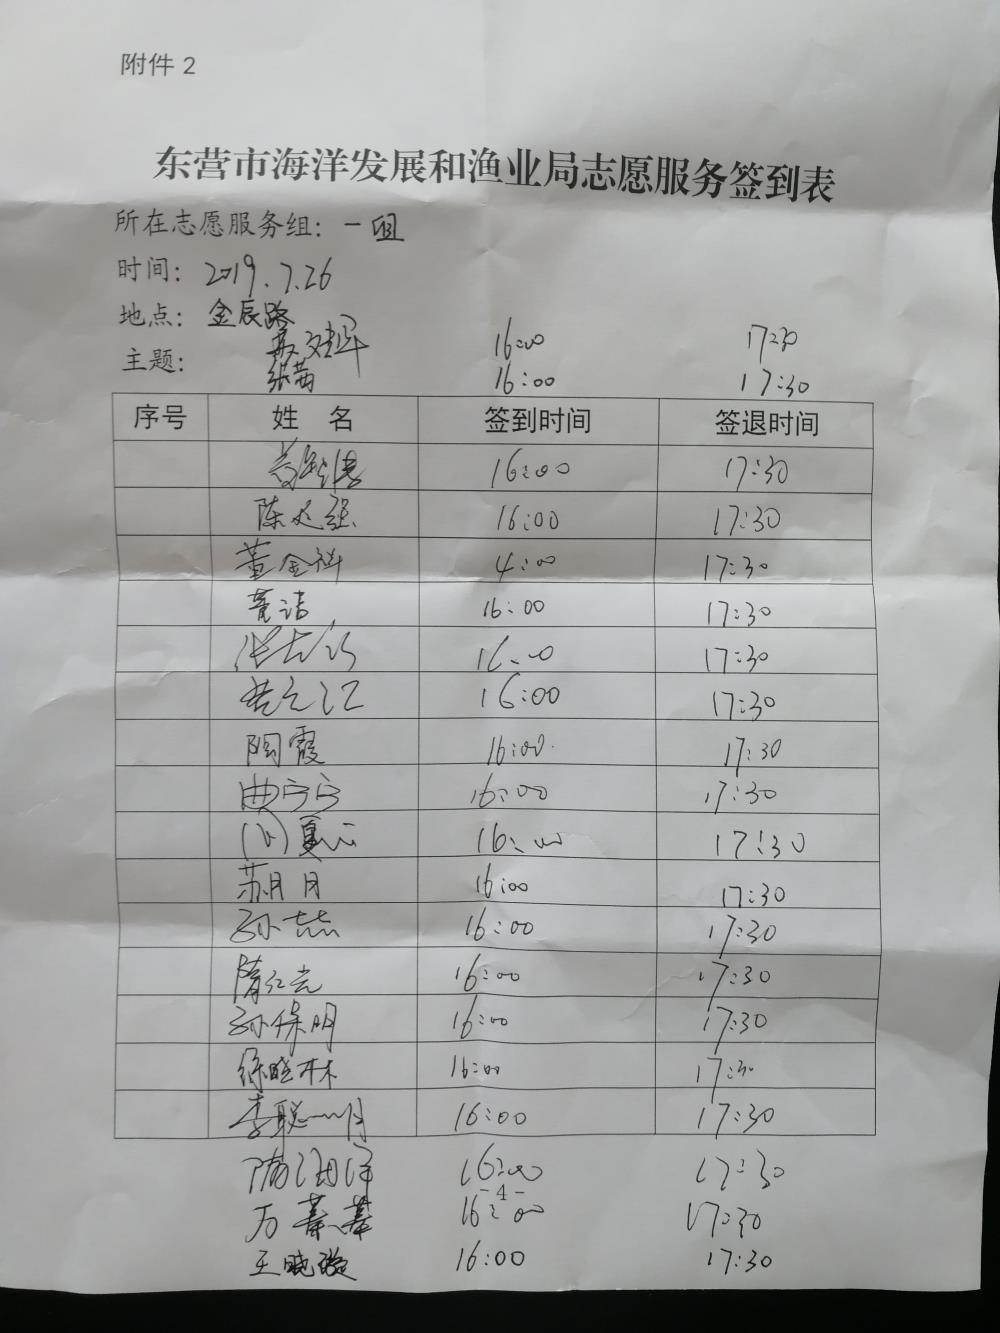 附件 2
东营市海洋发展和渔业局志愿服务签到表
所在志愿服务组：一组
时间：2019.7.26
地点：金辰路
16:00 17:30
主题：
张茜 16:00 17:30
序号 姓 名 签到时间 签退时间
16:00 17:30
陈延强 16:00 17:30
董金祥 4:00 17:30
董洁 16:00 17:30
16:00 17:30
16:00 17:30
陶霞 16:00 17:30
曲宁宁 16:00 17:30
16:00 17:30
苏月月 16:00 17:30
孙喆 16:00 17:30
隋红光 16:00 17:30
孙保明 16:00 17:30
徐晓林 16:00 17:30
李聪明 16:00 17:30
隋润洋 16:00 17:30
- 4 -
万蓁蓁 16:00 17:30
王晓璇 16:00 17:30